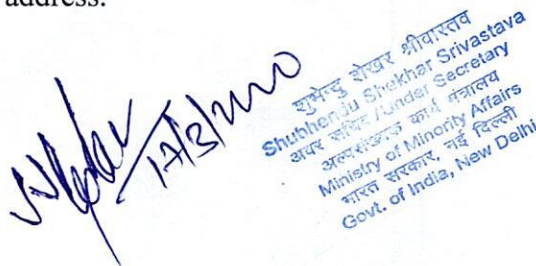 address.
17/3/2020
शुभेन्दु शेखर श्रीवास्तव
Shubhendu Shekhar Srivastava
अवर सचिव / Under Secretary
अल्पसंख्यक कार्य मंत्रालय
Ministry of Minority Affairs
भारत सरकार, नई दिल्ली
Govt. of India, New Delhi